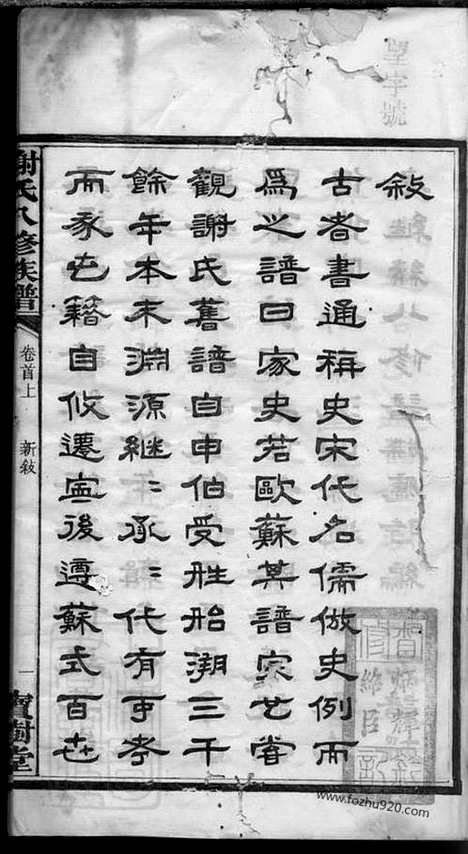 望字號
敍
古者書通稱史宋代名儒倣史例而
爲之譜曰家史若歐蘇其譜宗也嘗
觀謝氏舊譜自申伯受姓胎溯三千
餘年本末淵源繼〻承〻代有可考
而世籍自攸遷寍後遵蘇式百世
謝氏八修族譜
卷首上
新敍
一
寶樹堂
www.fozhu920.com